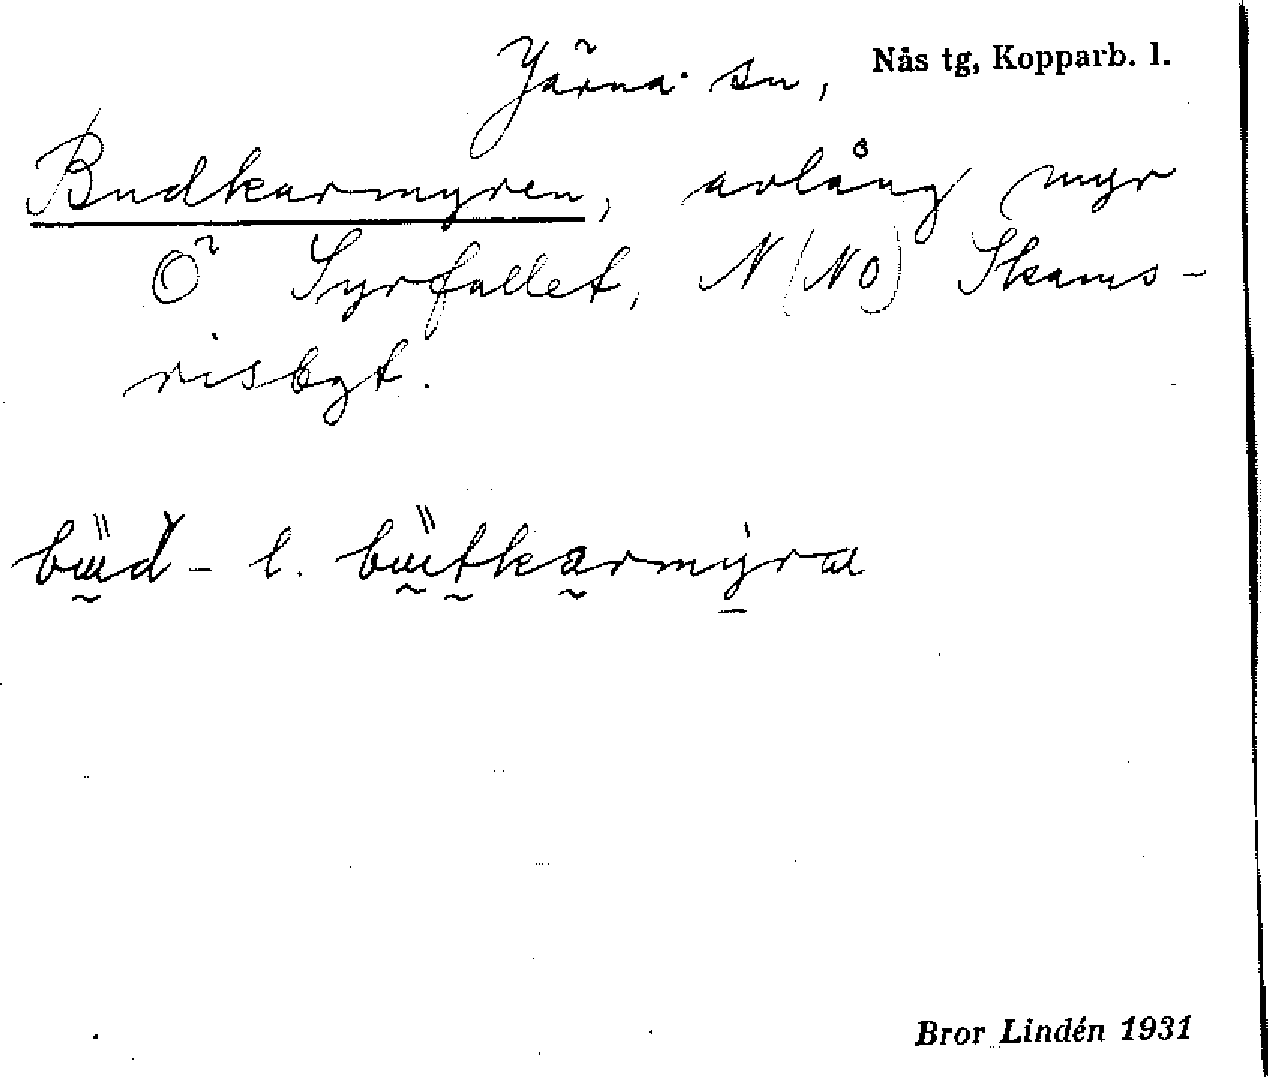 Järna sn, Nås tg, Kopparb. l.
Budkarmyren, avlång myr
Ö Syrfallet, N (NO) Skams-
risbgt.
bu̎d- l. bu̎tkarmýra
Bror Lindén 1931